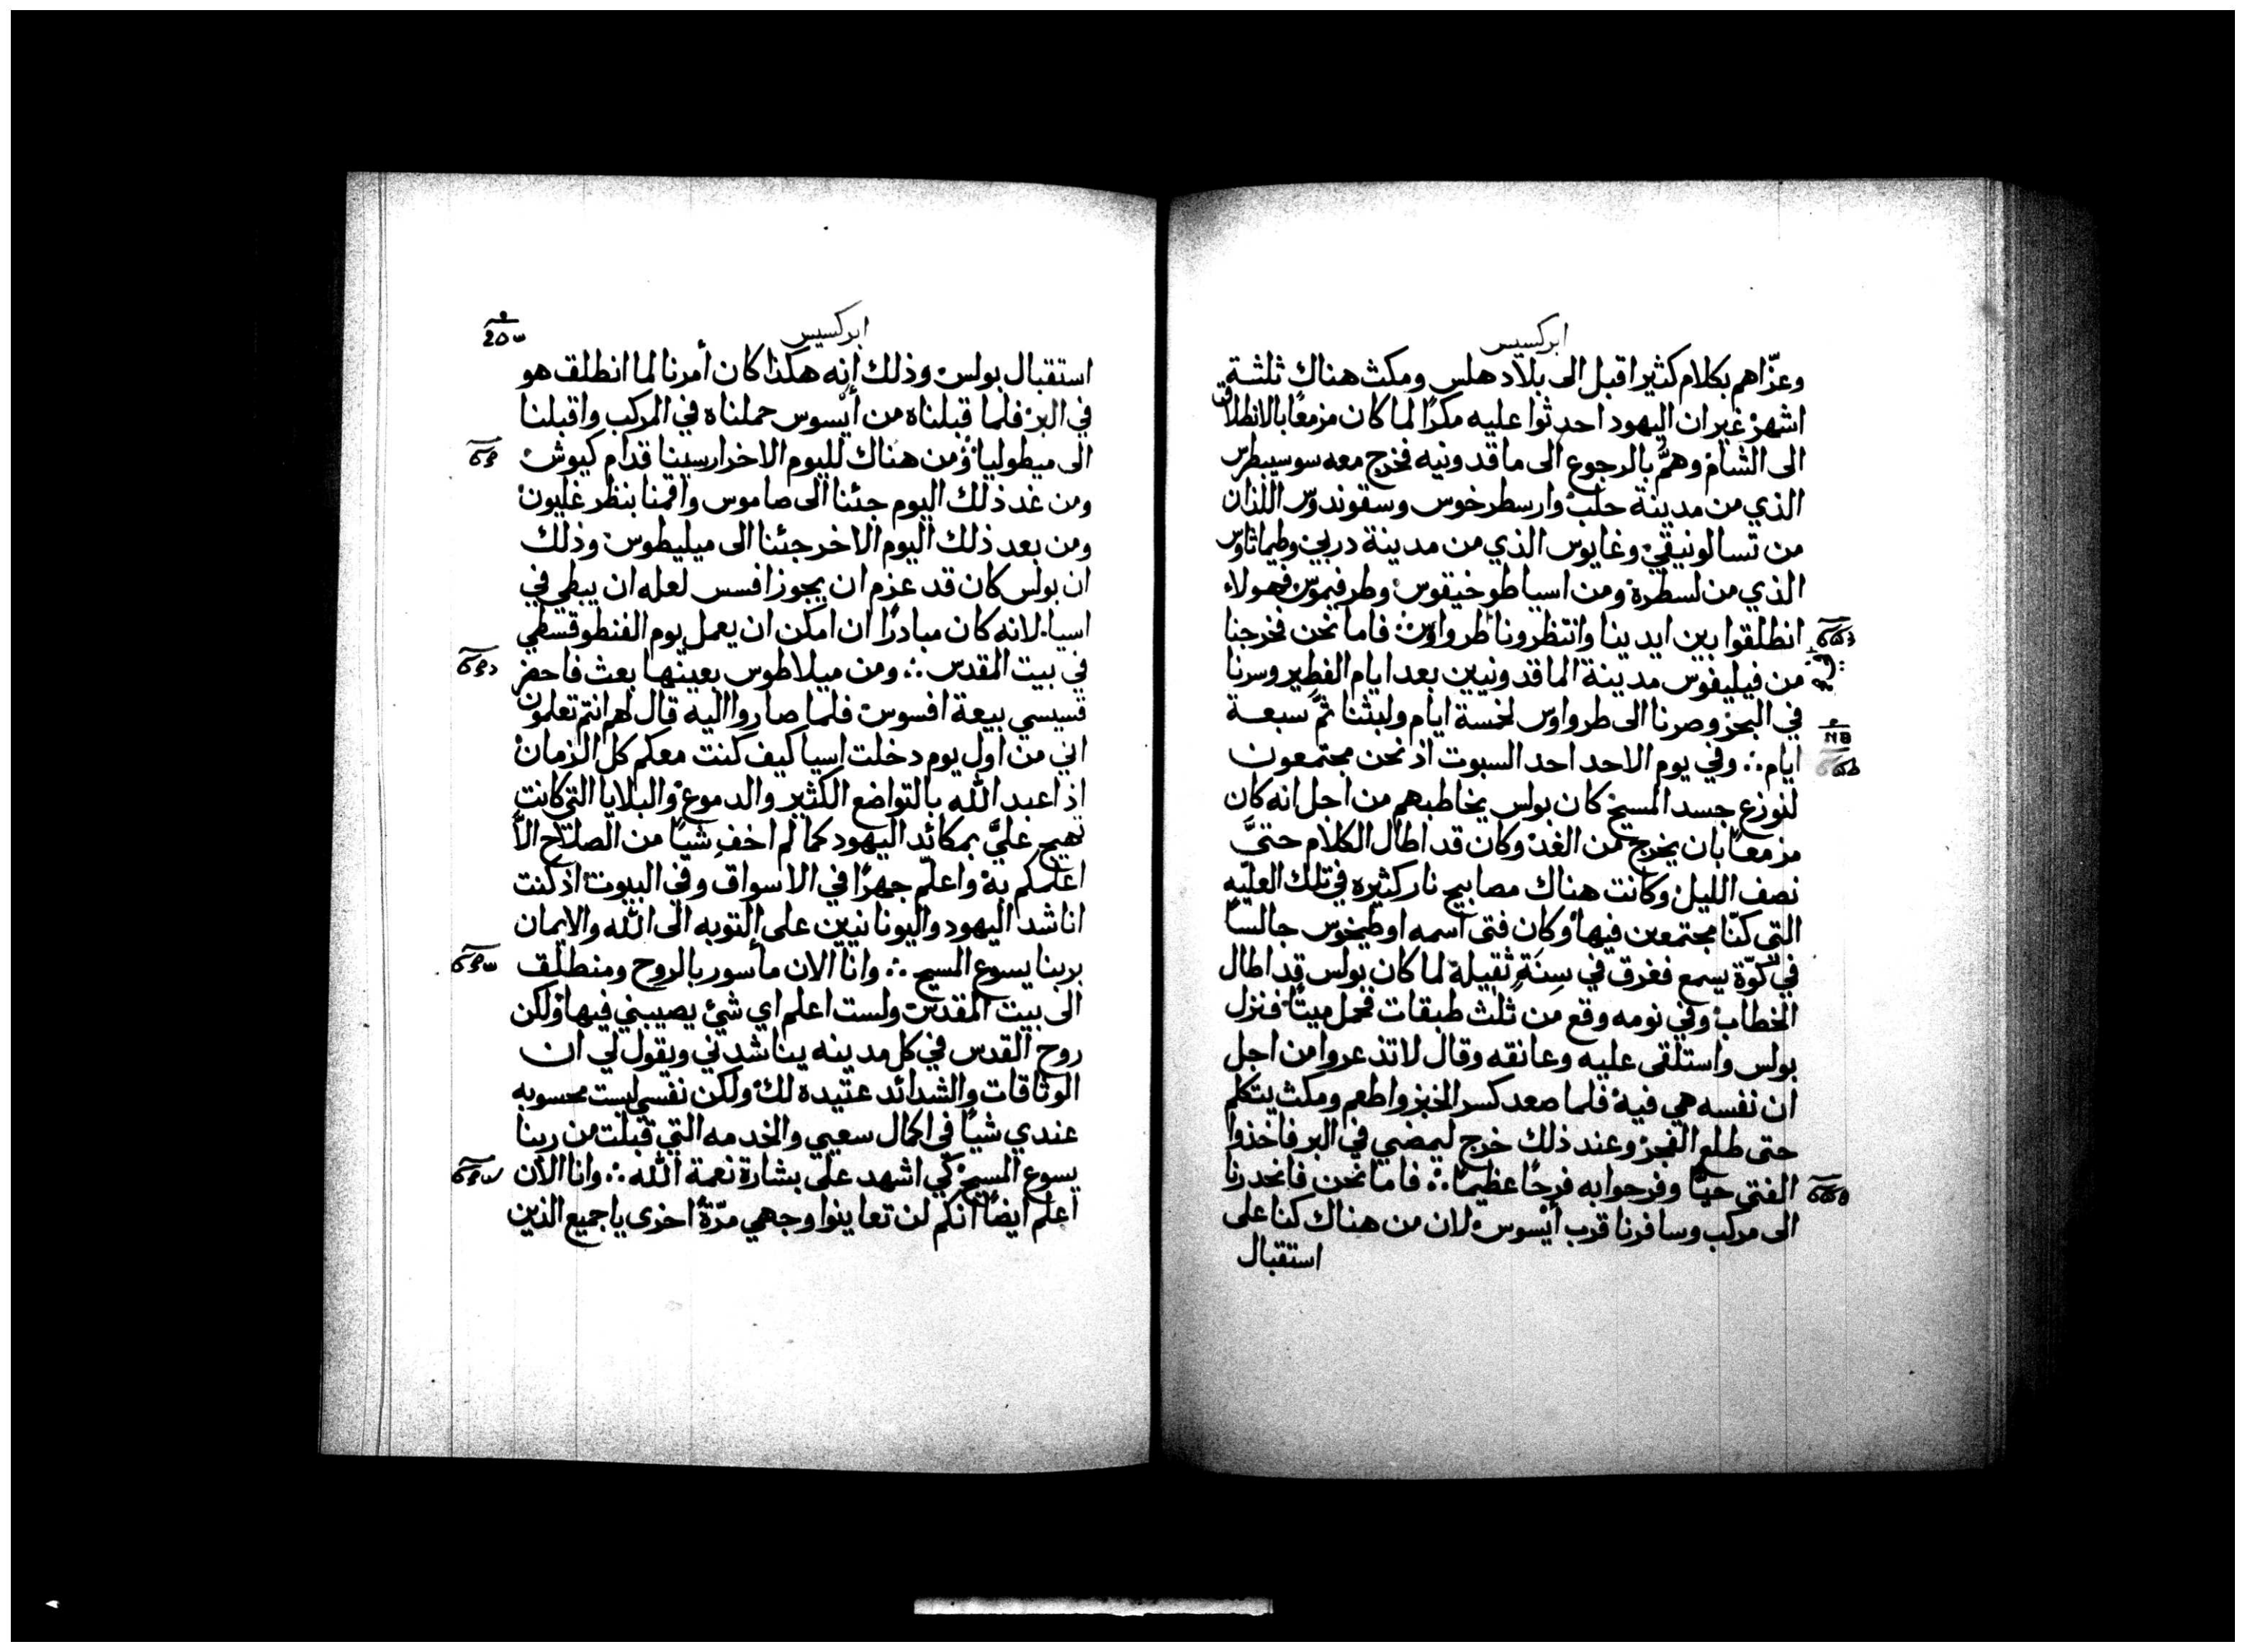 ابركسيس
وعزّاهم بكلام كثير اقبل الى بلاد هلس ومكث هناك ثلثة
اشهر غير ان اليهود احدثوا عليه مكرًا لما كان مزمعًا بالانطلاق
الى الشام وهمَّ بالرجوع الى ماقدونيه فخرج معه سوسيبطرس
الذي من مدينة حلب وارسطرخوس وسقوندوس اللذان
من تسالونيقي وغايوس الذي من مدينة دربي وطيماثاوس
الذي من لسطرة ومن اسيا طوخيقوس وطرفيموس فهولاء
انطلقوا بين ايدينا وانتظرونا طرواوس فاما نحن فخرجنا
من فيليفوس مدينة الماقدونيين بعد ايام الفطير وسرنا
في البحر وصرنا الى طرواوس لخمسة ايام ولبثنا ثمَّ سبعة
ايام ∴ وفي يوم الاحد احد السبوت اذ نحن مجتمعون
لنوزع جسد المسيح كان بولس يخاطبهم من اجل انه كان
مزمعًا بان يخرج من الغد وكان قد اطال الكلام حتىَّ
نصف الليل وكانت هناك مصابيح نار كثيره في تلك العليّه
التي كنّا مجتمعين فيها وكان فتى اسمه اوطيخوس جالسًا
في كوّة يسمع فغرق في سِنَةٍ ثقيلة لما كان بولس قد اطال
الخطاب وفي نومه وقع من ثلث طبقات فحمل ميتًا فنزل
بولس واستلقى عليه وعانقه وقال لا تذعروا من اجل
ان نفسه هي فيه فلما صعد كسر الخبز واطعم ومكث يتكلم
حتى طلع الفجر وعند ذلك خرج ليمضي في البر فاخذوا
الفتى حيًّا وفرحوا به فرحًا عظيمًا ∴ فاما نحن فانحدرنا
الى مركب وسافرنا قرب أيْسوس لان من هناك كنا على
استقبال
ابركسيس
استقبال بولس وذلك إنه هكذا كان أمرنا لما انطلق هو
في البر فلما قبلناه من أيْسوس حملناه في المركب واقبلنا
الى ميطوليا ومن هناك لليوم الاخر ارسينا قدام كيوش
ومن غد ذلك اليوم جئنا الى صاموس واقمنا بنظر غليون
ومن بعد ذلك اليوم الاخر جئنا الى ميليطوس وذلك
ان بولس كان قد عزم ان يجوز افسس لعله ان يبطي في
اسيا لانه كان مبادرًا ان امكن ان يعمل يوم الفنطوقسطي
في بيت المقدس ∴ ومن ميلاطوس بعينها بعث فاحضر
قسيسي بيعة افسوس فلما صاروا اليه قال لهم انتم تعلمون
اني من اول يوم دخلت اسيا كيف كنت معكم كل الزمان
اذ اعبد الله بالتواضع الكثير والدموع والبلايا التي كانت
تهيج عليَّ بمكائد اليهود كما لم اخفِ شيًا من الصلاح الاَّ
اعلمكم به واعلّم جهرًا في الاسواق وفي البيوت اذ كنت
اناشد اليهود واليونانيين على التوبه الى الله والايمان
بربنا يسوع المسيح ∴ وانا الان مأسور بالروح ومنطلق
الى بيت المقدس ولست اعلم اي شئ يصيبني فيها ولكن
روح القدس في كل مدينه يناشدني ويقول لي ان
الوثاقات والشدائد عتيده لك ولكن نفسي ليست محسوبه
عندي شيًا في اكمال سعيي والخدمه التي قبلت من ربنا
يسوع المسيح كي اشهد على بشارة نعمة الله ∴ وانا الأن
اعلم ايضًا أنكم لن تعاينوا وجهي مرّةً احرى يا جميع الذين